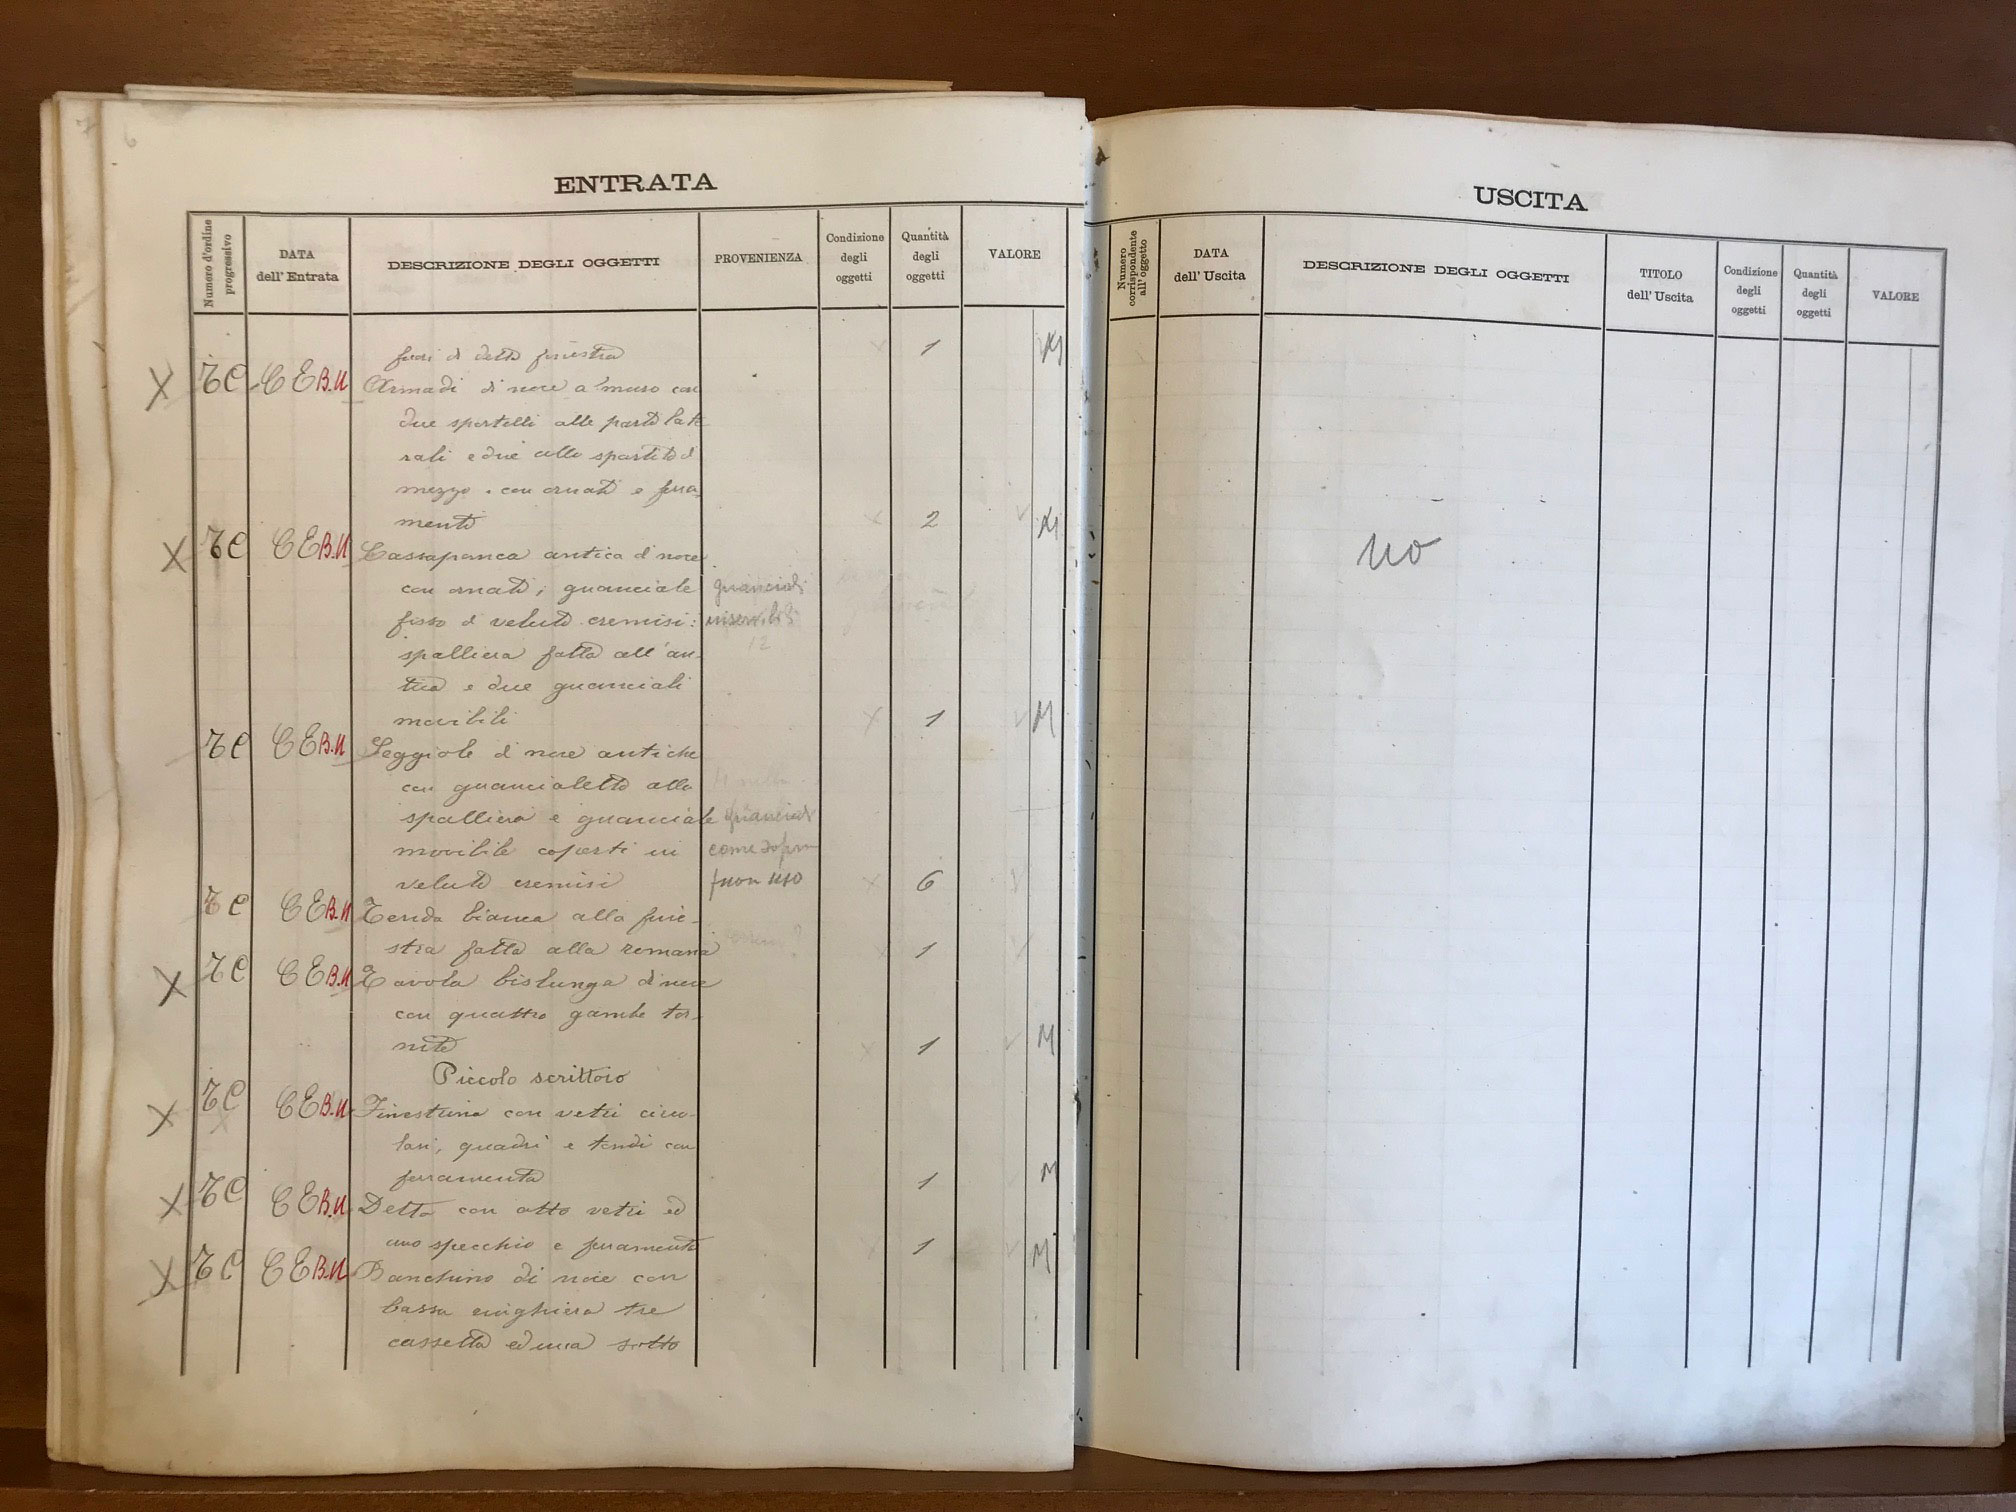 ENTRATA
Numero d'ordine progressivo
DATA dell' Entrata
DESCRIZIONE DEGLI OGGETTI
PROVENIENZA
Condizione degli oggetti
Quantità degli oggetti
VALORE
fuori di detta finestra 1
TC CE B.N Armadi di noce a muro con
due sportelli alle parti late
rali e due allo spartito di
mezzo. con ornati e ferra
menti 2
TC CE B.N Cassapanca antica di noce
con ornati; guanciale guanciali
fisso di velluto cremisi: inservibili
spalliera fatta all'an- 12
tica e due guanciali
movibili 1 M
TC CE B.N Seggiole di noce antiche
con guancialetto alla
spalliera e guanciale guanciali
movibile coperti in come sopra
veluto cremisi fuori uso 6
TC CE B.N Tenda bianca alla fine-
stra fatta alla romana 1
TC CE B.N Tavola bislunga di noce
con quattro gambe tor-
nite 1 M
Piccolo scrittoio
TC CE B.N Finestrina con vetri circo-
lari, quadri e tondi con
ferramenta 1 M
TC CE B.N Detta con otto vetri ed
uno specchio e ferramenta 1 M
TC CE B.N Banchino di noce con
bassa ringhiera tre
cassette ed una sotto
USCITA
Numero corrispondente all' oggetto
DATA dell' Uscita
DESCRIZIONE DEGLI OGGETTI
TITOLO dell' Uscita
Condizione degli oggetti
Quantità degli oggetti
VALORE
no